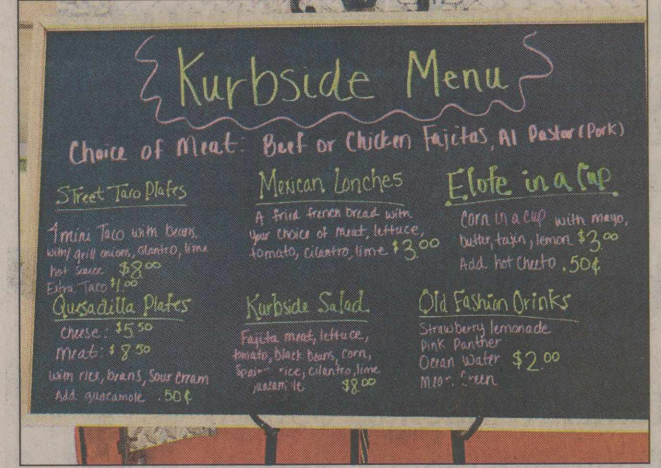 Kurbside Menu
Choice of Meat: Beef or Chicken Fajitas, Al Pastor (Pork)
Street Taco Plates
4 mini Taco with beans,
with/ grill onions, cilantro, lime
hot sauce $8.00
Extra Taco $1.00
Quesadilla Plates
Cheese: $5.50
Meat: $8.50
with rice, beans, sour cream
Add guacamole .50¢
Mexican Lonches
A fried french bread with
your choice of meat, lettuce,
tomato, cilantro, lime $3.00
Kurbside Salad
Fajita meat, lettuce,
tomato, black beans, corn,
rice, cilantro, lime
$8.00
Elote in a Cup
Corn in a cup with mayo,
butter, tajin, lemon $3.00
Add hot Cheeto .50¢
Old Fashion Drinks
Strawberry lemonade
Pink Panther
Ocean Water $2.00
Green